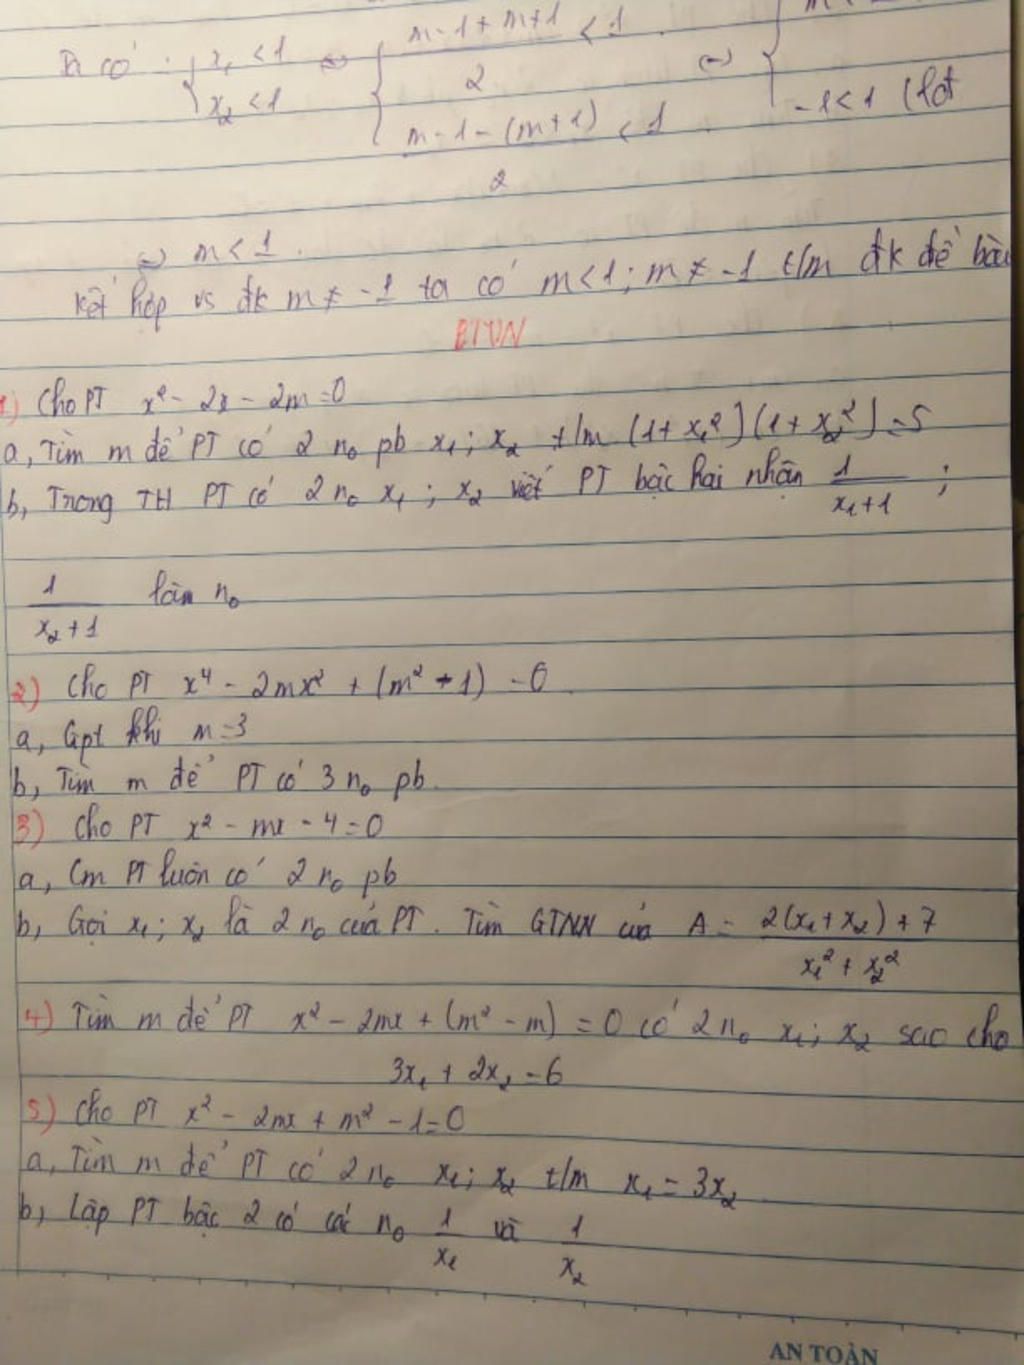 Ta có : { x₁ < 1 ⇔ { (m-1+m+1)/2 < 1 ⇔ {
x₂ < 1 (m-1-(m+1))/2 < 1 -1 < 1 (lđt
⇔ m < 1.
Kết hợp vs đk m ≠ -1 ta có m < 1; m ≠ -1 t/m đk đề bài
BTVN
1) Cho PT x² - 2x - 2m = 0
a, Tìm m để PT có 2 n₀ pb x₁; x₂ t/m (1+x₁²)(1+x₂²) = 5
b, Trong TH PT có 2 n₀ x₁; x₂ viết PT bậc hai nhận 1/(x₁+1) ;
1/(x₂+1) làm n₀
2) Cho PT x⁴ - 2mx² + (m² - 1) = 0
a, Gpt khi m = 3
b, Tìm m để PT có 3 n₀ pb.
3) Cho PT x² - mx - 4 = 0
a, Cm PT luôn có 2 n₀ pb
b, Gọi x₁; x₂ là 2 n₀ của PT. Tìm GTNN của A = (2(x₁+x₂)+7)/(x₁²+x₂²)
4) Tìm m để PT x² - 2mx + (m² - m) = 0 có 2 n₀ x₁; x₂ sao cho
3x₁ + 2x₂ = 6
5) Cho PT x² - 2mx + m² - 1 = 0
a, Tìm m để PT có 2 n₀ x₁; x₂ t/m x₁ = 3x₂
b, Lập PT bậc 2 có các n₀ 1/x₁ và 1/x₂
AN TOÀN